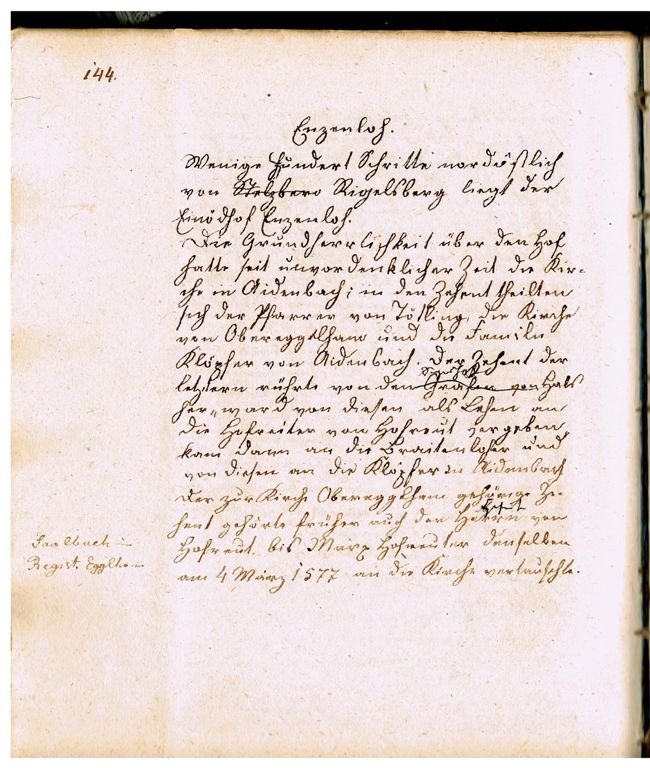 144.
Enzenloh.
Wenige hundert Schritte nordöstlich
von Stelzbero Rigelsberg liegt der
Einödhof Enzenloh.
Die Grundherrlichkeit über den Hof
hatte seit unvordenklicher Zeit die Kir-
che in Aidenbach; in den Zehent theilten
sich der Pfarrer von Tötling, die Kirche
von Obereggelham und die Familie
Klöpfer von Aidenbach. Der Zehent der
letztern rührte von den Grafen von Hals
her, ward von diesen als Lehen an
die Hofreiter von Hofreut vergeben,
kam dann an die Braitenloher und
von diesen an die Klöpfer in Aidenbach
Der zur Kirche Obereggelham gehörige Ze-
hent gehörte früher auch den Herrn von
Hofreut bis Marx Hofreuter denselben
am 4 März 1577 an die Kirche vertauschte.
Saalbuch in
Regist. Egglham